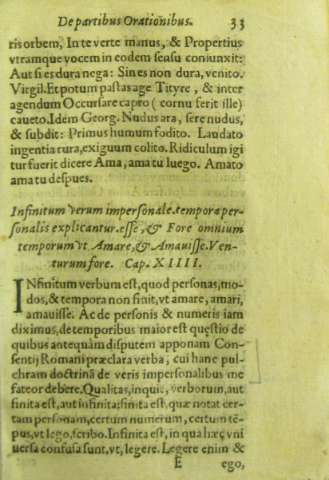 De partibus Orationibus. 33
ris orbem, In te verte manus, & Propertius
vtramque vocem in eodem sensu coniunxit:
Aut si es dura nega: Sin es non dura, venito.
Virgil. Et potum pastas age Tityre, & inter
agendum Occursare capro (cornu ferit ille)
caueto. Idem Georg. Nudus ara, sere nudus,
& subdit: Primus humum fodito. Laudato
ingentia rura, exiguum colito. Ridiculum igi
tur fuerit dicere Ama, ama tu luego. Amato
ama tu despues.
Infinitum verum impersonale. tempora per-
sonalis explicantur. esse, & Fore omnium
temporum vt Amare, & Amauisse. Ven-
turum fore. Cap. XIIII.
INfinitum verbum est, quod personas, mo-
dos, & tempora non finit, vt amare, amari,
amauisse. Ac de personis & numeris iam
diximus, de temporibus maior est quęstio de
quibus antequàm disputem apponam Con-
sentij Romani præclara verba, cui hanc pul-
chram doctrinã de veris impersonalibus me
fateor debere. Qualitas, inquit, verborum, aut
finita est, aut infinita: finita est, quæ notat cer-
tam personam, certum numerum, certum tẽ-
pus, vt lego, scribo. Infinita est, in qua hæç vni
uersa confusa sunt, vt, legere. Legere enim &
E ego,